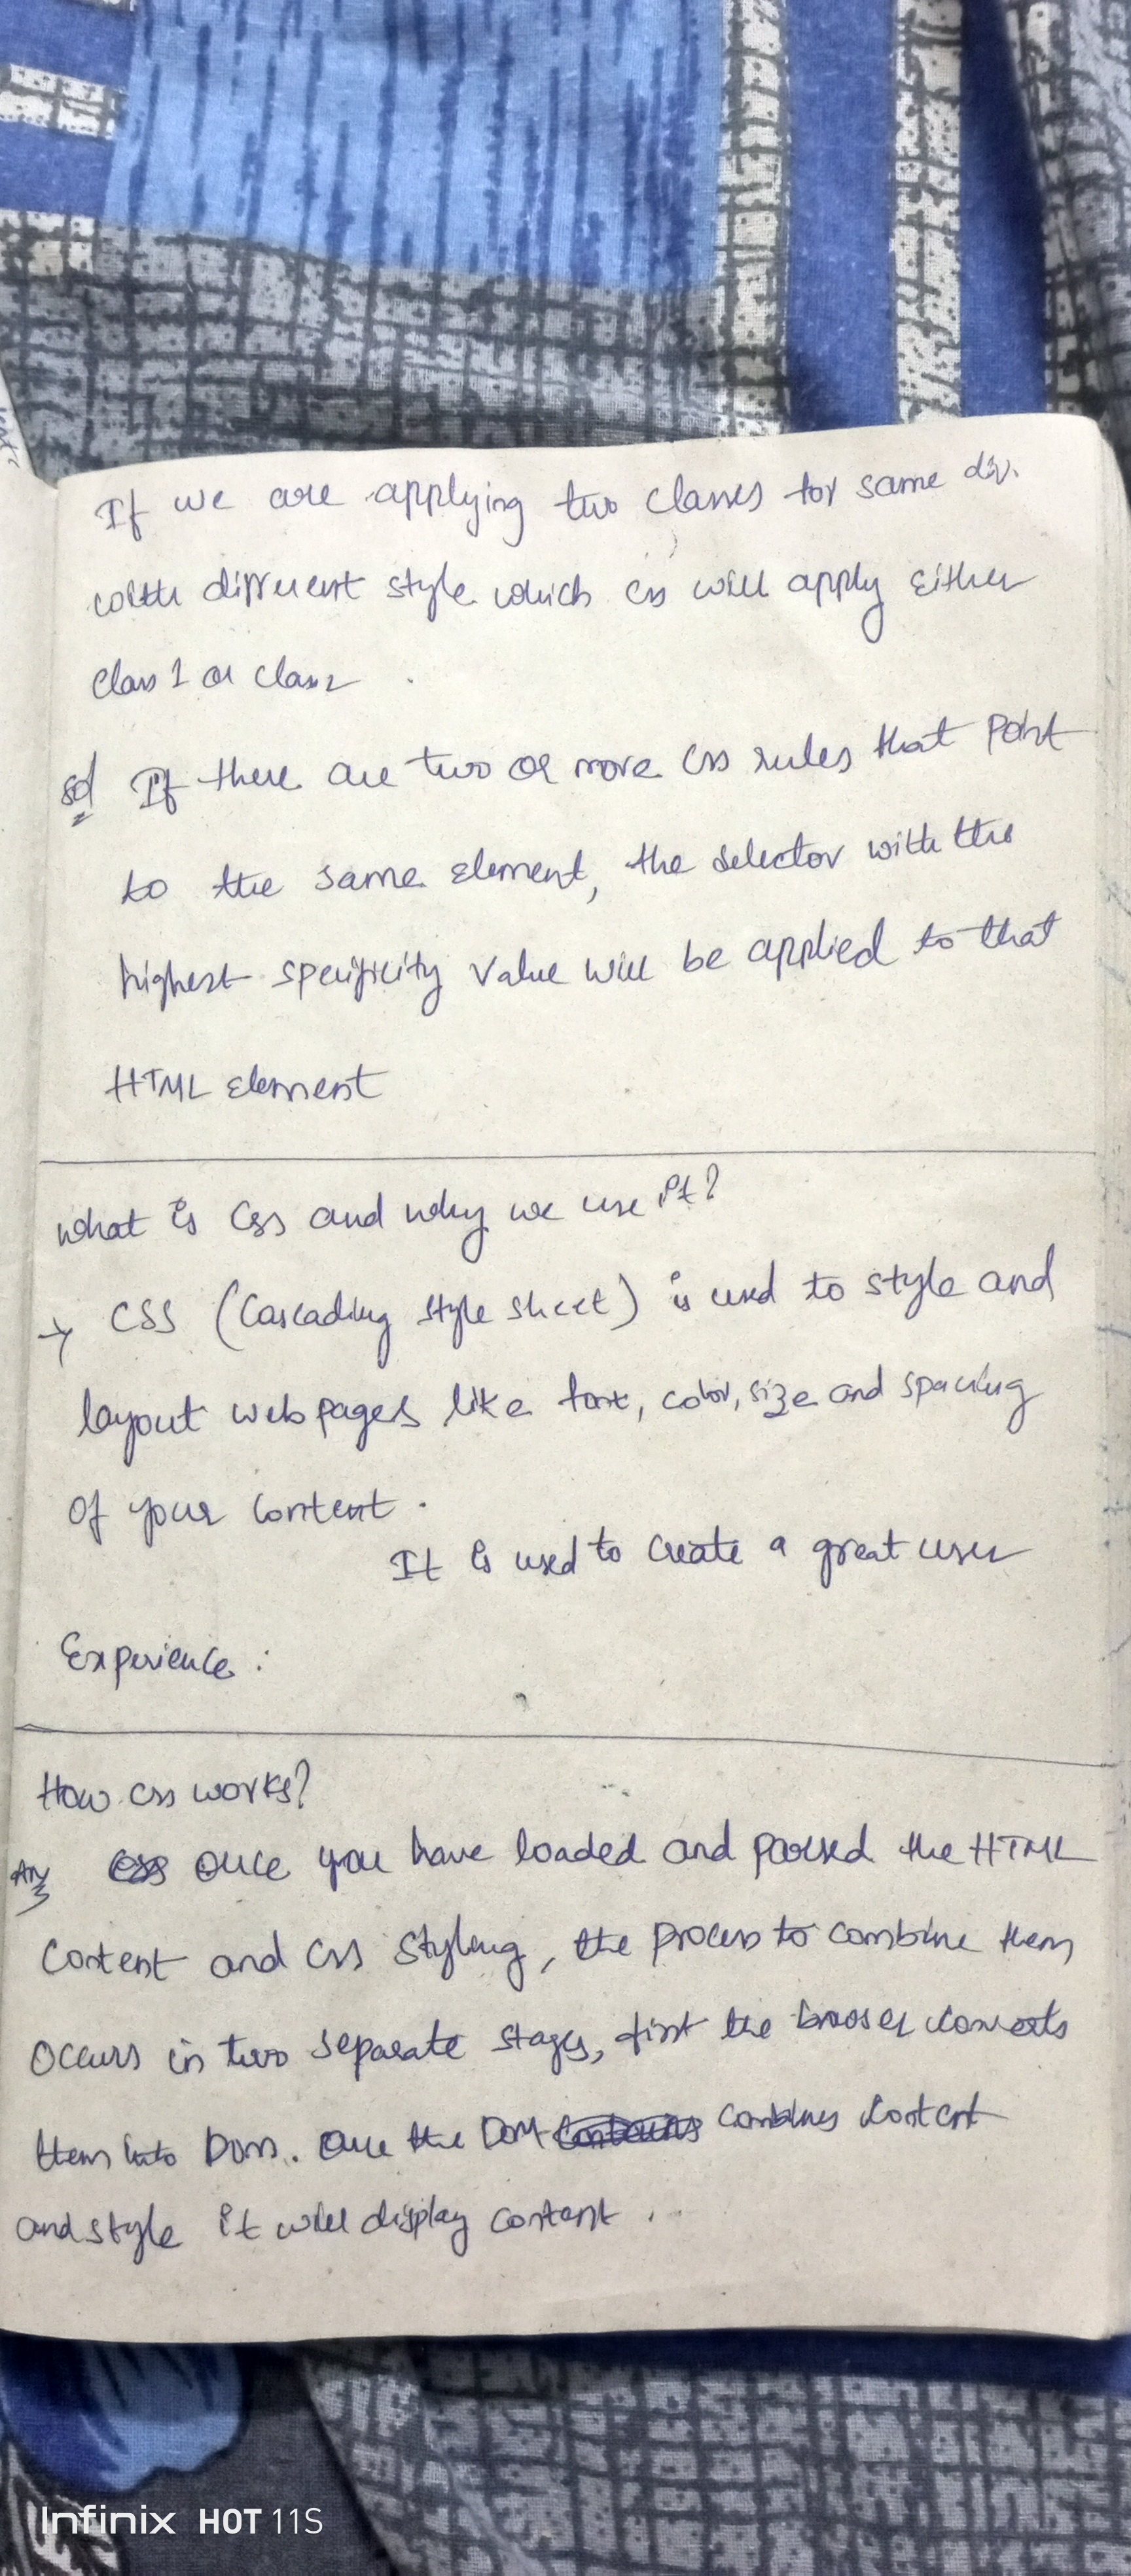 If we are applying two classes for same div.
with different style which css will apply either
class 1 or class2.
sol If there are two or more css rules that point
to the same element, the selector with the
highest specificity value will be applied to that
HTML element
what is Css and why we use it?
→ CSS (Cascading style sheet) is used to style and
layout webpages like font, color, size and spacing
of your content.
It is used to create a great user
Experience.
How css works?
Ans once you have loaded and parsed the HTML
content and css styling, the process to combine them
occurs in two separate stages, first the browser converts
them into Dom. once the DOM combines content
and style it will display content.
Infinix HOT 11S